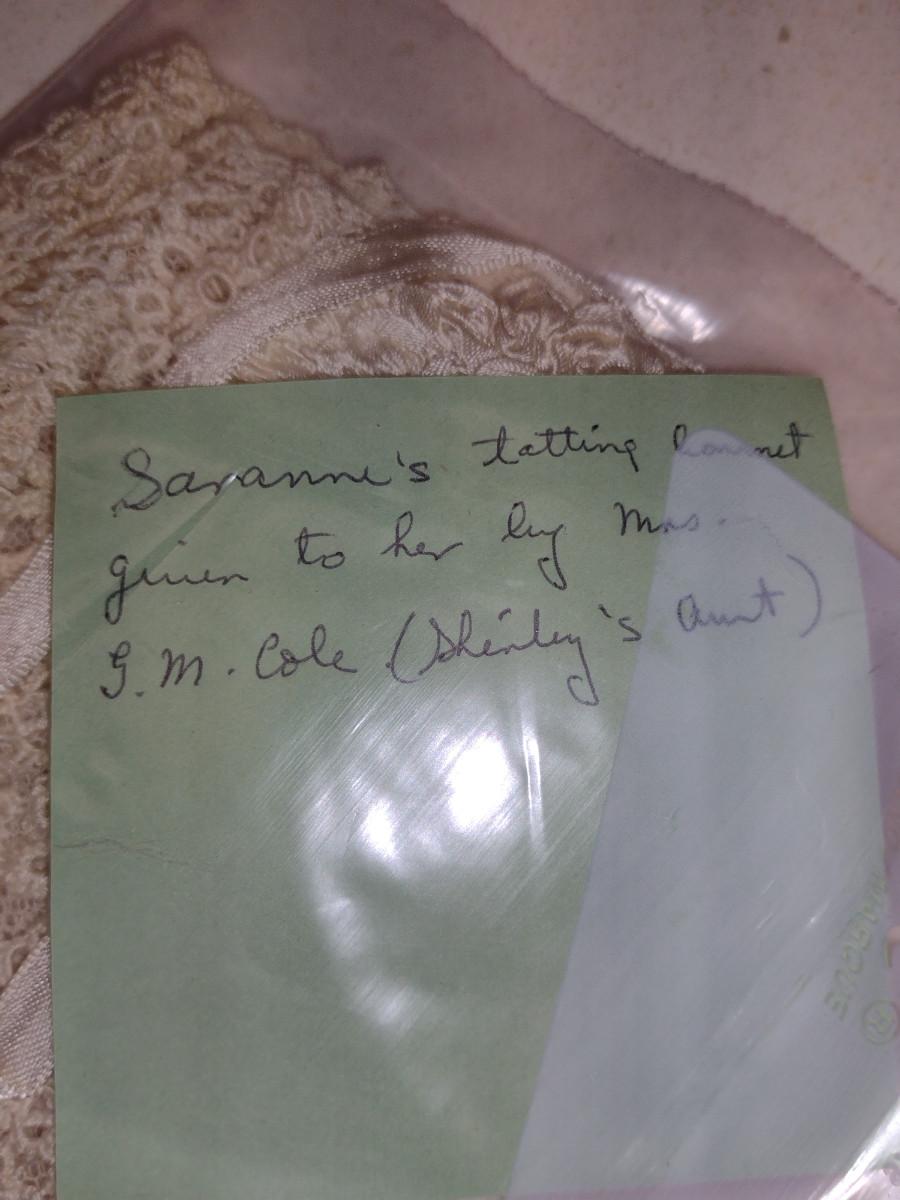 Saranne's tatting bonnet
given to her by Mrs.
G.M. Cole (Shirley's Aunt)
®